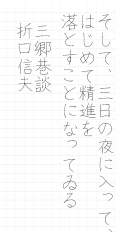 そして、三日の夜に入って、
はじめて精進を
落とすことになってゐる
三郷巷談
折口信夫